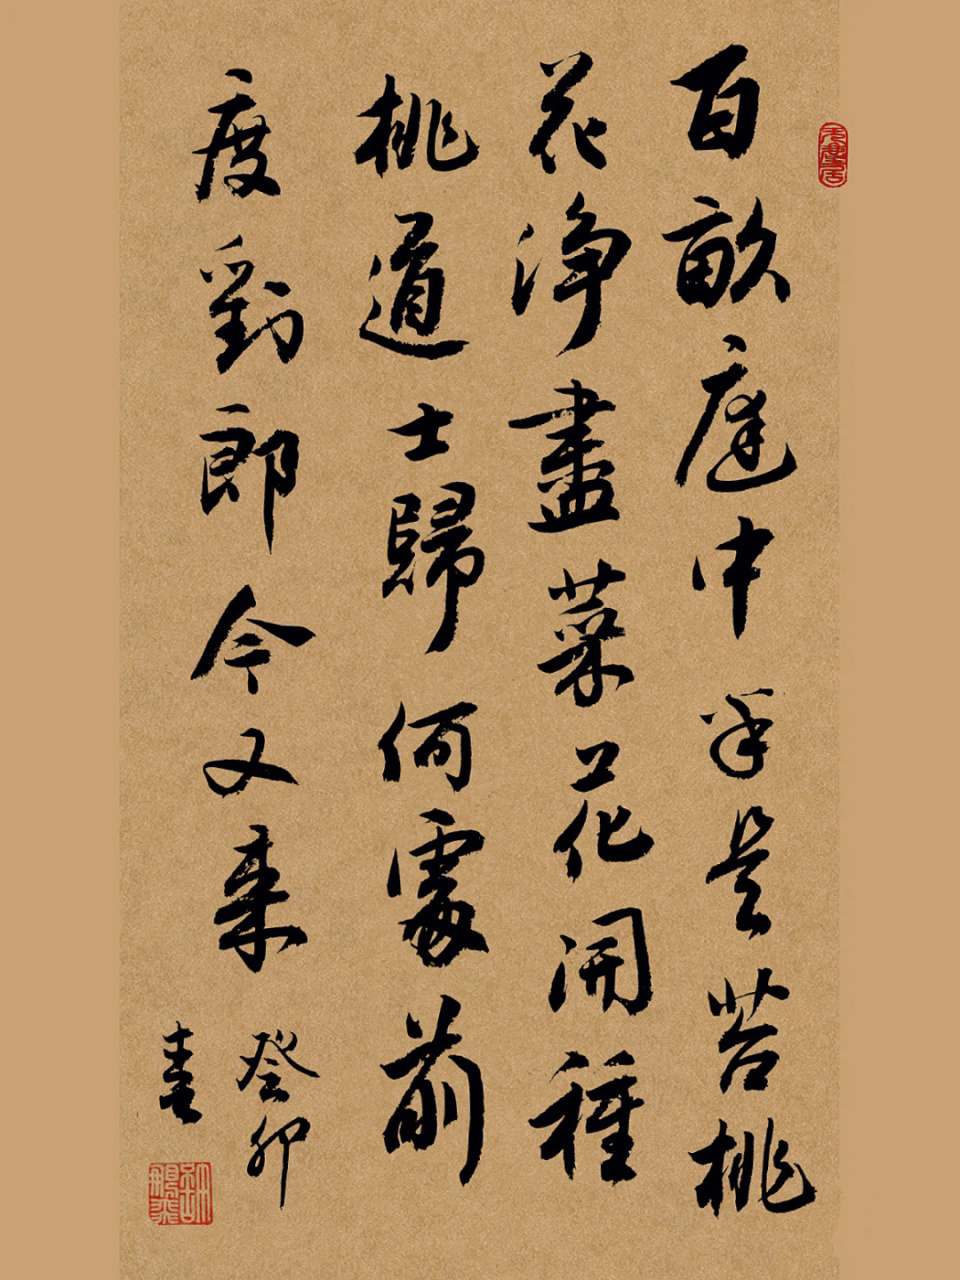 百畝庭中半是苔桃
花淨盡菜花開種
桃道士歸何處前
度劉郎今又来
癸卯